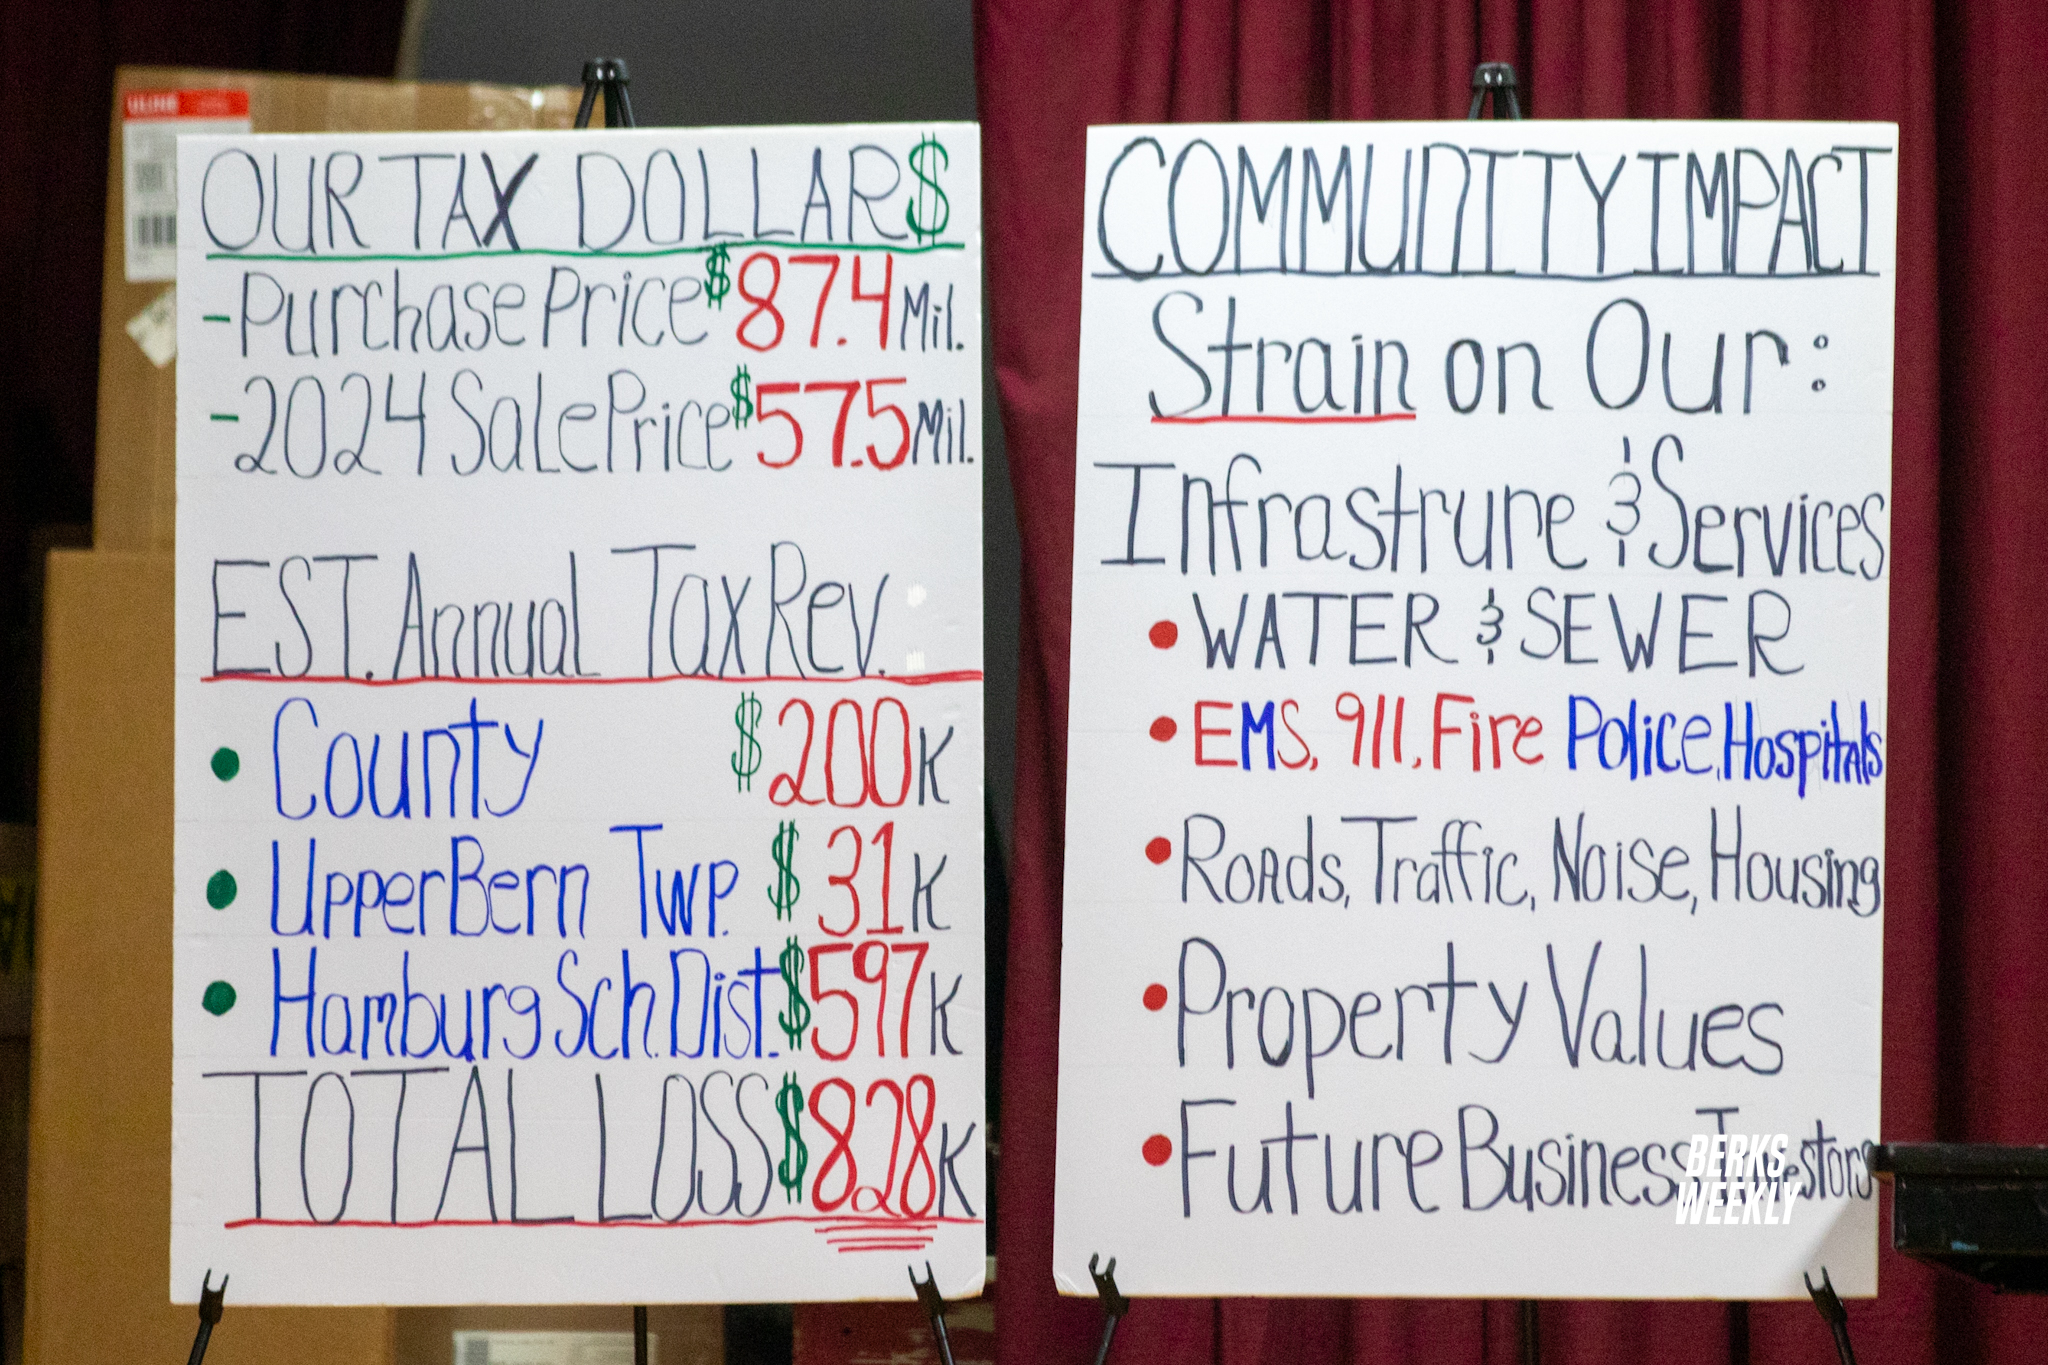 ULINE
OUR TAX DOLLAR$
- Purchase Price $87.4 Mil.
- 2024 Sale Price $57.5 Mil.
EST. Annual Tax Rev. :
• County $200K
• Upper Bern Twp. $31K
• Hamburg Sch. Dist. $597K
TOTAL LOSS $828K
COMMUNITY IMPACT
Strain on Our:
Infrastrure & Services
• WATER & SEWER
• EMS, 911, Fire Police, Hospitals
• Roads, Traffic, Noise, Housing
• Property Values
• Future Business Investors
BERKS
WEEKLY